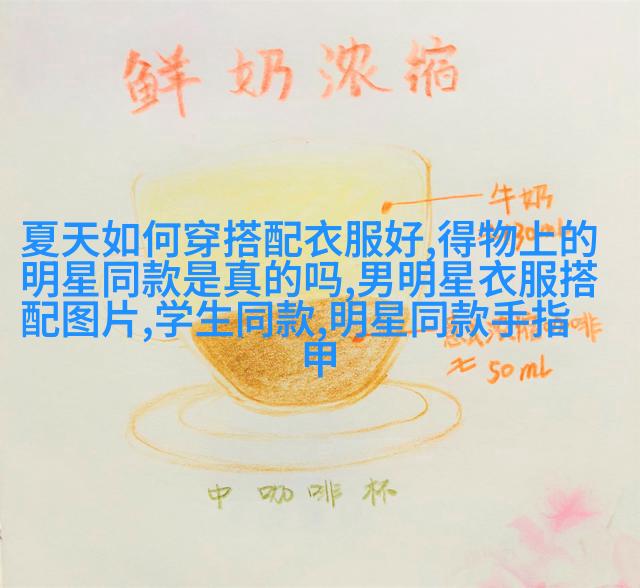 鲜奶浓缩
牛奶
夏天如何穿搭配衣服好,得物上的
明星同款是真的吗,男明星衣服搭
配图片,学生同款,明星同款手指
甲
≈ 50ml
中咖啡杯